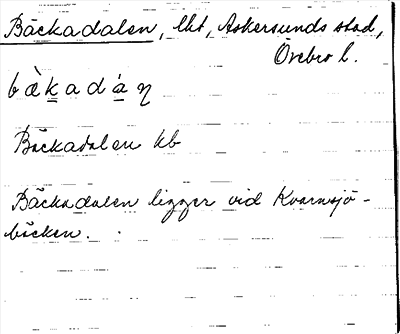 Bäckadalen, lht, Askersunds stad,
Örebro l.
bä̀kadáṇ
Bäckadalen kb
Bäckadalen ligger vid Kvarnsjö-
bäcken.